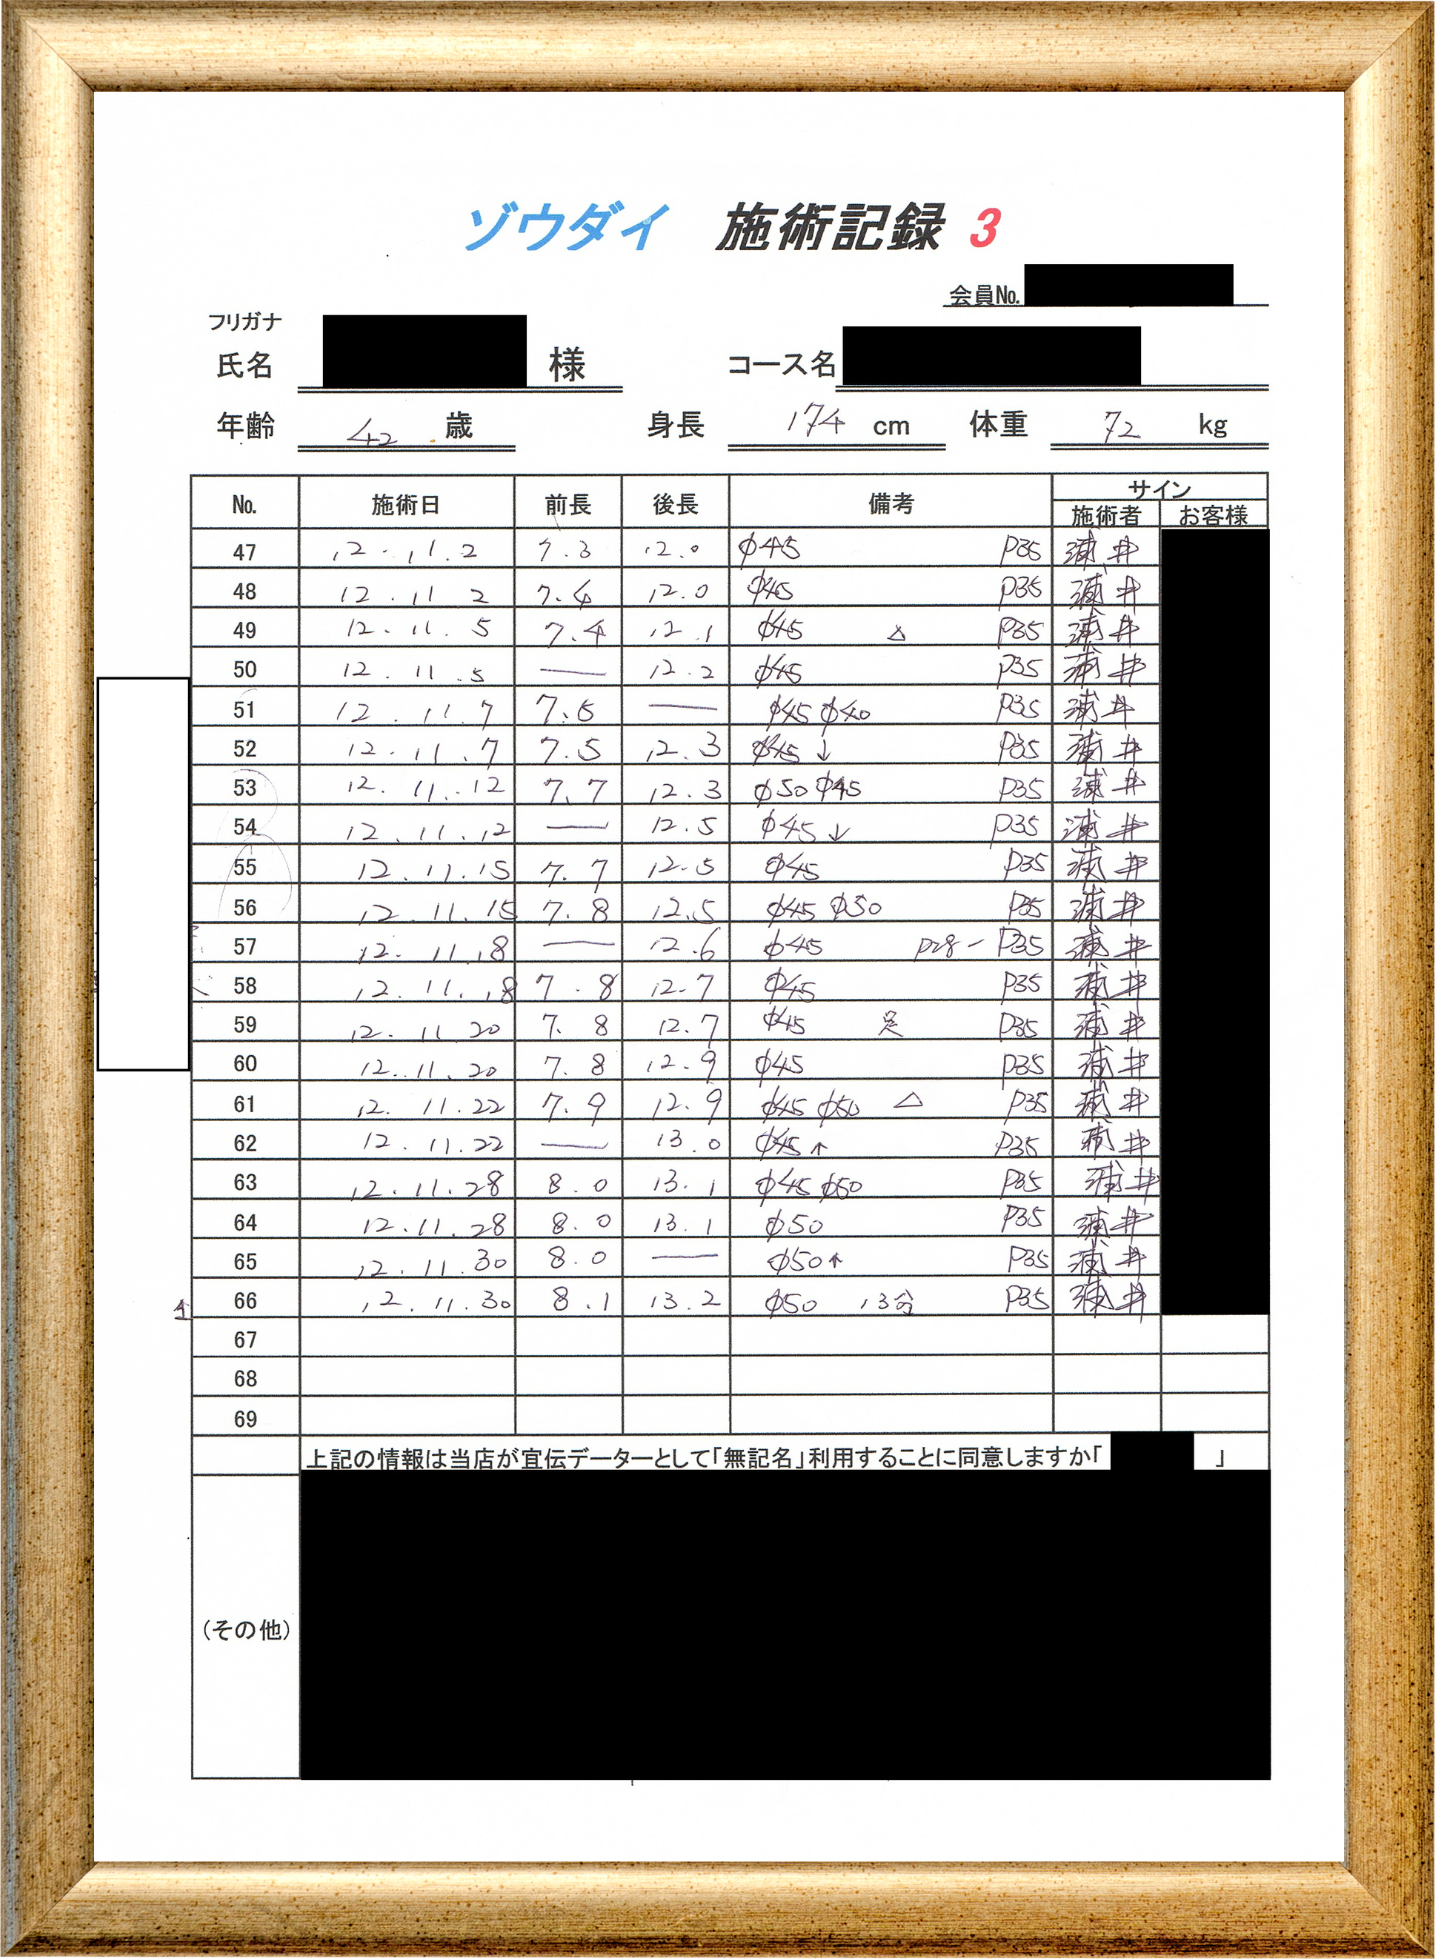 ゾウダイ 施術記録 3
会員No.
フリガナ
氏名 様 コース名
年齢 42 歳 身長 174 cm 体重 72 kg
No. 施術日 前長 後長 備考 サイン
施術者 お客様
47 12.11.2 7.3 12.0 φ45 P35 浦井
48 12.11 2 7.4 12.0 φ45 P35 浦井
49 12.11.5 7.4 12.1 φ45 △ P35 浦井
50 12.11.5 — 12.2 φ45 P35 浦井
51 12.11.7 7.5 — φ45 φ40 P35 浦井
52 12.11.7 7.5 12.3 φ45 ↓ P35 浦井
53 12.11.12 7.7 12.3 φ50 φ45 P35 浦井
54 12.11.12 — 12.5 φ45 ↓ P35 浦井
55 12.11.15 7.7 12.5 φ45 P35 浦井
56 12.11.15 7.8 12.5 φ45 φ50 P35 浦井
57 12.11.18 — 12.6 φ45 P28 – P35 浦井
58 12.11.18 7.8 12.7 φ45 P35 浦井
59 12.11 20 7.8 12.7 φ45 P35 浦井
60 12.11.20 7.8 12.9 φ45 P35 浦井
61 12.11.22 7.9 12.9 φ45 φ50 △ P35 浦井
62 12.11.22 — 13.0 φ45 ↑ P35 浦井
63 12.11.28 8.0 13.1 φ45 φ50 P35 浦井
64 12.11.28 8.0 13.1 φ50 P35 浦井
65 12.11.30 8.0 — φ50 ↑ P35 浦井
66 12.11.30 8.1 13.2 φ50 13分 P35 浦井
67
68
69
上記の情報は当店が宣伝データーとして「無記名」利用することに同意しますか「 」
(その他)